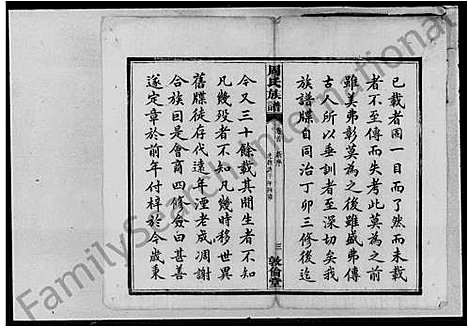 已載者固一目而了然而未載
者不至傳而失考此莫為之前
雖美弗彰莫為之後雖盛弗傳
古人所以垂訓者至深切矣我
族譜牒自同治丁卯三修後迄
周氏族譜
卷首
三
敦倫堂
今又三十餘載其間生者不知
凡幾歿者不知凡幾時移世異
舊牒徒存代遠年湮老成凋謝
合族因是會商四修僉曰甚善
遂定章於前年付梓於今歲東
FamilySearch International